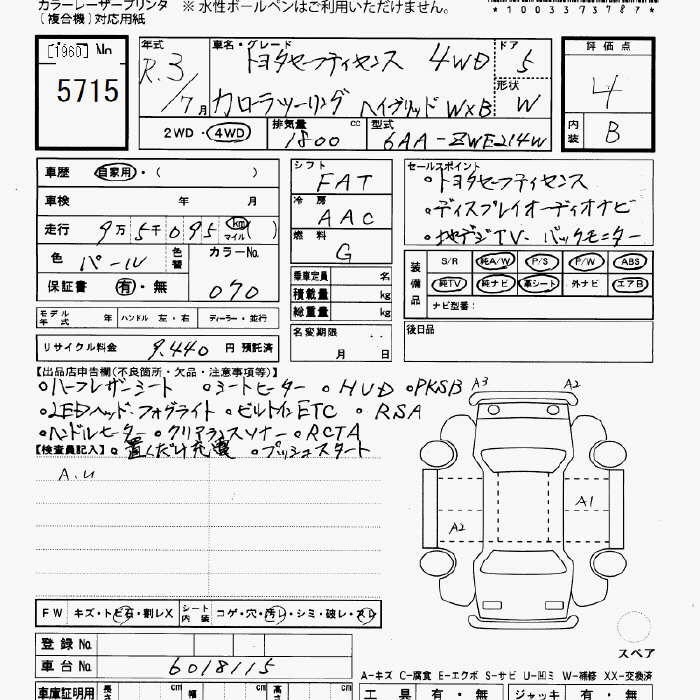 カラーレーザープリンタ ※ 水性ボールペンはご利用いただけません。
(複合機)対応用紙 *100337378?*
[1960] No 5715
年式 R.3 / 7月
車名・グレード トヨタセーフティセンス 4WD
カローラツーリング ハイブリッド W×B
ドア 5
形状 W
評価点 4
内装 B
2WD・4WD 排気量 1800 cc 型式 6AA-ZWE214W
車歴 自家用・( )
車検 年 月
走行 9万5千095 km マイル ( )
色 パール 色替 カラーNo. 070
保証書 有・無
モデル年式 年 ハンドル 左・右 ディーラー・並行
リサイクル料金 9.440 円 預託済
シフト FAT
冷房 AAC
燃料 G
乗車定員 名
積載量 kg
総重量 kg
名変期限 ..
月 日
セールスポイント
・トヨタセーフティセンス
・ディスプレイオーディオナビ
・地デジTV・バックモニター
装備品 S/R 純A/W P/S P/W ABS
純TV 純ナビ 革シート 外ナビ エアB
ナビ型番:
後日品
【出品店申告欄(不良箇所・欠品・注意事項等)】
○ハーフレザーシート ○シートヒーター ○HUD ○PKSB
○LEDヘッド・フォグライト ○ビルトインETC ○RSA
○ハンドルヒーター ○クリアランスソナー ○RCTA
【検査員記入】 ○置くだけ充電 ○プッシュスタート
A.u
A3 A2
A1
A2
スペア
FW キズ・トビ石・割レX シート内装 コゲ・穴・汚レ・シミ・破レ・スレ
登録No.
車台No. 6018115
A-キズ C-腐食 E-エクボ S-サビ U-凹ミ W-補修 XX-交換済
車庫証明用 長さ cm 幅 cm 高さ cm
工具 有・無 ジャッキ 有・無